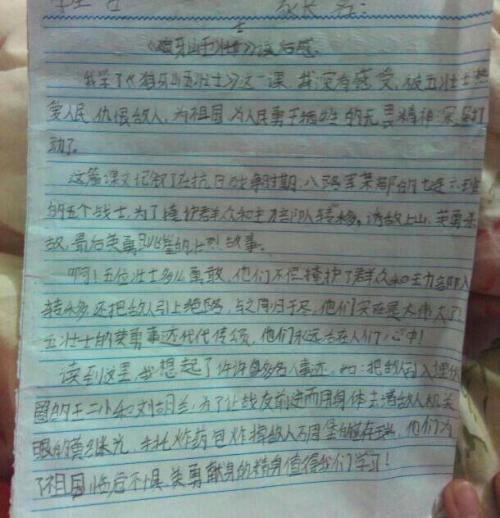 家长 名:
《狼牙山五壮士》读后感
我学了《狼牙山五壮士》这一课,我深有感受,被五壮士热
爱人民,仇恨敌人,为祖国 为人民勇于牺牲的无畏精神深深打
动了。
这篇课文记叙了在抗日战争时期,八路军某部的七连六班
的五个战士,为了掩护群众和主力部队转移,诱敌上山,英勇杀
敌,最后英勇 的壮烈故事。
啊!五位壮士多么勇敢,他们不但掩护了群众和主力部队
转移,还把敌人引上绝路,与之同归于尽,他们实在是太伟大了,
五壮士的英勇事迹代代传颂,他们永远活在人们心中!
读到这里,我想起了许许多多名人事迹,如:把敌人引入埋伏
圈的王二小和刘胡兰,为了让战友前进而用身体去堵敌人机关
眼的黄继光,手托炸药包炸掉敌人碉堡的董存瑞,他们为
了祖国临危不惧,英勇献身的精神值得我们学习!